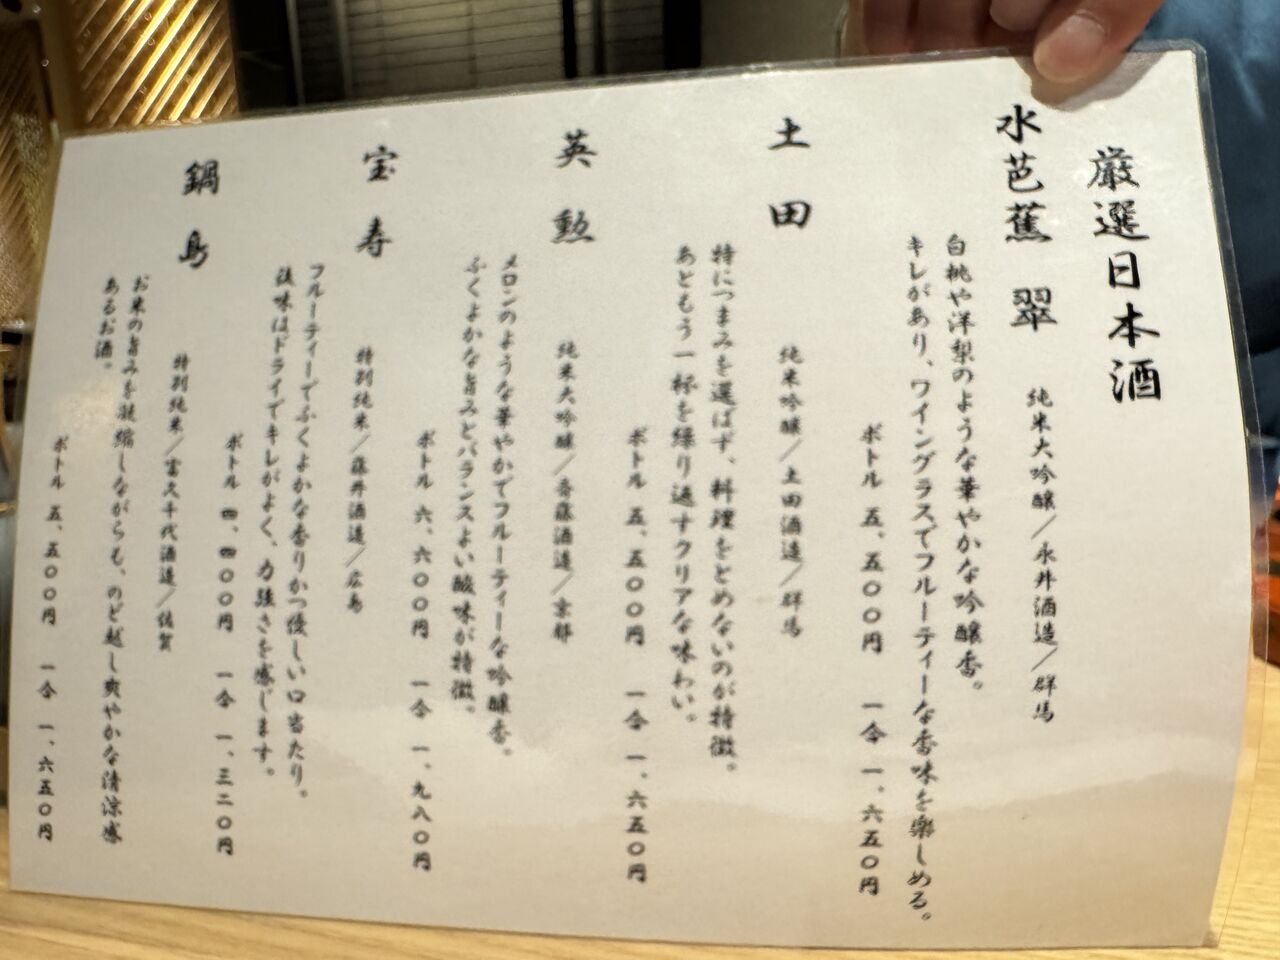 厳選日本酒
水芭蕉 翠 純米大吟醸／永井酒造／群馬
白桃や洋梨のような華やかな吟醸香。
キレがあり、ワイングラスでフルーティーな香味を楽しめる。
ボトル 五、五〇〇円 一合 一、六五〇円
土田 純米吟醸／土田酒造／群馬
特につまみを選ばず、料理をとめないのが特徴。
あともう一杯を繰り返すクリアな味わい。
ボトル 五、五〇〇円 一合 一、六五〇円
英勲 純米大吟醸／斎藤酒造／京都
メロンのような華やかでフルーティーな吟醸香。
ふくよかな旨みとバランスよい酸味が特徴。
ボトル 六、六〇〇円 一合 一、九八〇円
宝寿 特別純米／藤井酒造／広島
フルーティーでふくよかな香りかつ優しい口当たり。
後味はドライでキレがよく、力強さを感じます。
ボトル 四、四〇〇円 一合 一、三二〇円
鍋島 特別純米／富久千代酒造／佐賀
お米の旨みを凝縮しながらも、のど越し爽やかな清涼感
あるお酒。
ボトル 五、五〇〇円 一合 一、六五〇円